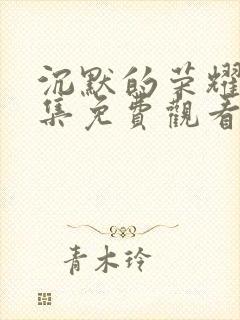 沉默的荣耀
集免費觀看
青木玲